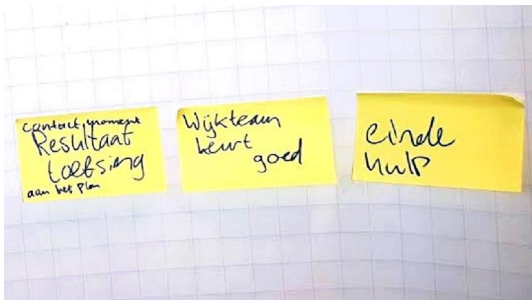 contact moment
Resultaat
toetsing
aan het plan
Wijkteam
keurt
goed
einde
hulp